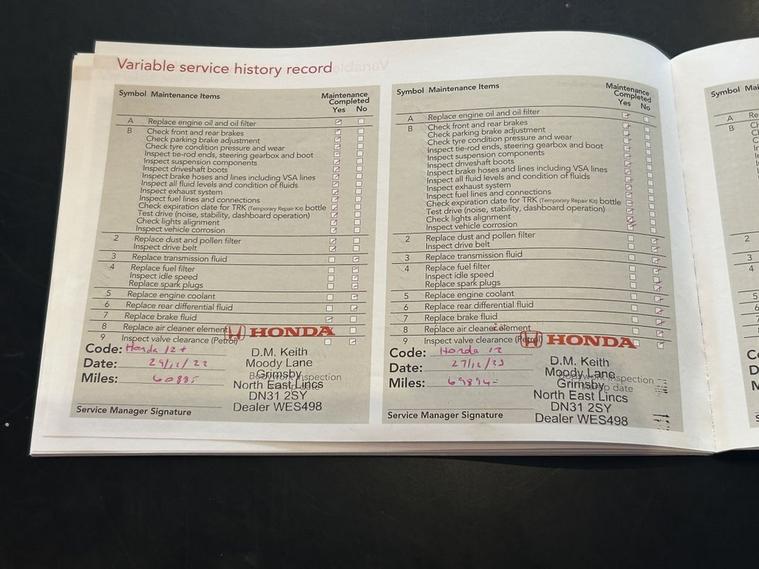 Variable service history record
Symbol Maintenance Items Maintenance Completed Yes No
A Replace engine oil and oil filter
B Check front and rear brakes
Check parking brake adjustment
Check tyre condition pressure and wear
Inspect tie-rod ends, steering gearbox and boot
Inspect suspension components
Inspect driveshaft boots
Inspect brake hoses and lines including VSA lines
Inspect all fluid levels and condition of fluids
Inspect exhaust system
Inspect fuel lines and connections
Check expiration date for TRK (Temporary Repair Kit) bottle
Test drive (noise, stability, dashboard operation)
Check lights alignment
Inspect vehicle corrosion
2 Replace dust and pollen filter
Inspect drive belt
3 Replace transmission fluid
4 Replace fuel filter
Inspect idle speed
Replace spark plugs
5 Replace engine coolant
6 Replace rear differential fluid
7 Replace brake fluid
8 Replace air cleaner element
9 Inspect valve clearance (Petrol)
HONDA
Code: Honda 12+
Date: 29/12/22
Miles:
D.M. Keith
Moody Lane
Grimsby
North East Lincs
DN31 2SY
Dealer WES498
Service Manager Signature
Symbol Maintenance Items Maintenance Completed Yes No
A Replace engine oil and oil filter
B Check front and rear brakes
Check parking brake adjustment
Check tyre condition pressure and wear
Inspect tie-rod ends, steering gearbox and boot
Inspect suspension components
Inspect driveshaft boots
Inspect brake hoses and lines including VSA lines
Inspect all fluid levels and condition of fluids
Inspect exhaust system
Inspect fuel lines and connections
Check expiration date for TRK (Temporary Repair Kit) bottle
Test drive (noise, stability, dashboard operation)
Check lights alignment
Inspect vehicle corrosion
2 Replace dust and pollen filter
Inspect drive belt
3 Replace transmission fluid
4 Replace fuel filter
Inspect idle speed
Replace spark plugs
5 Replace engine coolant
6 Replace rear differential fluid
7 Replace brake fluid
8 Replace air cleaner element
9 Inspect valve clearance (Petrol)
HONDA
Code: Honda 12
Date: 27/12/23
Miles:
D.M. Keith
Moody Lane
Grimsby
North East Lincs
DN31 2SY
Dealer WES498
Service Manager Signature
Symbol
A
B
2
3
4
5
6